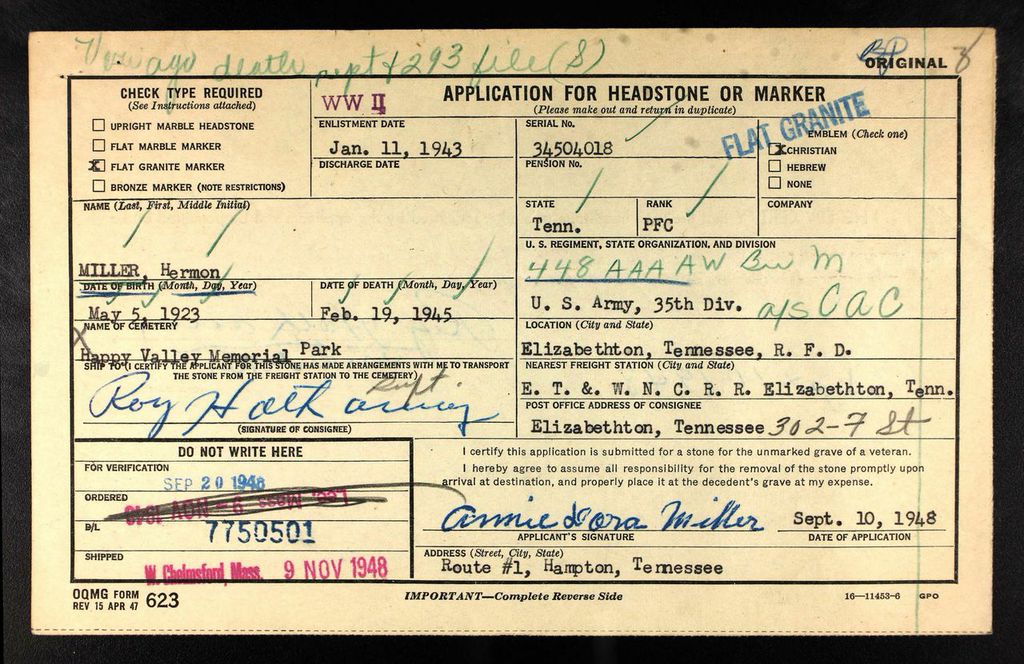 death rept & 293 file (S)
ORIGINAL
CHECK TYPE REQUIRED
(See Instructions attached)
UPRIGHT MARBLE HEADSTONE
FLAT MARBLE MARKER
X FLAT GRANITE MARKER
BRONZE MARKER (NOTE RESTRICTIONS)
WW II
APPLICATION FOR HEADSTONE OR MARKER
(Please make out and return in duplicate)
FLAT GRANITE
ENLISTMENT DATE
Jan. 11, 1943
DISCHARGE DATE
SERIAL No.
34504018
PENSION No.
EMBLEM (Check one)
X CHRISTIAN
HEBREW
NONE
NAME (Last, First, Middle Initial)
MILLER, Hermon
STATE
Tenn.
RANK
PFC
COMPANY
U. S. REGIMENT, STATE ORGANIZATION, AND DIVISION
448 AAA AW Bn M
U. S. Army, 35th Div. a/s CAC
DATE OF BIRTH (Month, Day, Year)
May 5, 1923
DATE OF DEATH (Month, Day, Year)
Feb. 19, 1945
NAME OF CEMETERY
Happy Valley Memorial Park
LOCATION (City and State)
Elizabethton, Tennessee, R. F. D.
SHIP TO (I CERTIFY THE APPLICANT FOR THIS STONE HAS MADE ARRANGEMENTS WITH ME TO TRANSPORT
THE STONE FROM THE FREIGHT STATION TO THE CEMETERY)
Supt.
Roy Hathaway
(SIGNATURE OF CONSIGNEE)
NEAREST FREIGHT STATION (City and State)
E. T. &. W. N. C. R. R. Elizabethton, Tenn.
POST OFFICE ADDRESS OF CONSIGNEE
Elizabethton, Tennessee 302-7 St
DO NOT WRITE HERE
FOR VERIFICATION
SEP 20 1948
ORDERED
B/L
7750501
SHIPPED
W. Chelmsford, Mass. 9 NOV 1948
I certify this application is submitted for a stone for the unmarked grave of a veteran.
I hereby agree to assume all responsibility for the removal of the stone promptly upon
arrival at destination, and properly place it at the decedent's grave at my expense.
Annie Dora Miller Sept. 10, 1948
APPLICANT'S SIGNATURE
DATE OF APPLICATION
ADDRESS (Street, City, State)
Route #1, Hampton, Tennessee
OQMG FORM
REV 15 APR 47 623
IMPORTANT—Complete Reverse Side
16—11453-6 GPO